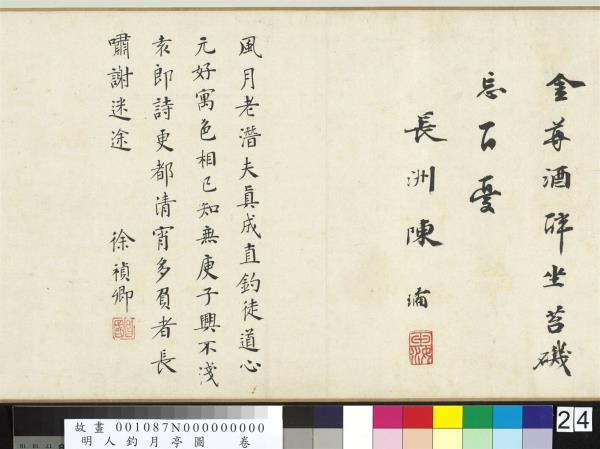 金尊酒醉坐苔磯
忘百憂
長洲陳
風月老潛夫真成直釣徒道心
元好寓色相已知無庾子興不淺
袁郎詩更都清宵多負者長
嘯謝迷途
徐禎卿
故畫 001087N000000000
明人釣月亭圖 卷
24